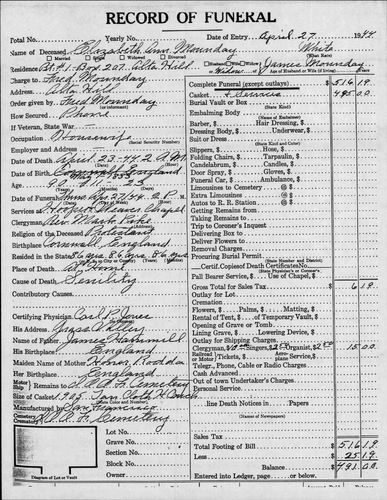 RECORD OF FUNERAL
Total No. Yearly No. Date of Entry April 27 1944
Name of Deceased Elizabeth Ann Mounday White
Married Single Widowed Divorced
Residence Rt #1-Box 207. Alta Hill Husband, Wife or Widow of James Mounday
Charge to Fred Mounday Age of Husband or Wife (if living) Years
Address Alta Hill
Order given by Fred Mounday
How Secured Phone
If Veteran, State War
Occupation Housewife
(Social Security Number)
Employer and Address
Date of Death April 23-44. 2 A.M.
Date of Birth
Age 90 10 23
Date of Funeral Apr 27/44. 2 P.
Services at Hooper & Weaver Chapel
Clergyman Rev
Religion of the Deceased Protestant
Birthplace Cornwall England
Resided in the State 86 yrs 86 yrs 86 yrs
Place of Death At Home
Cause of Death Senility
Contributory Causes
Certifying Physician Carl P. Jones
His Address Grass Valley
Name of Father James Hammill
His Birthplace England
Maiden Name of Mother Rodda
Her Birthplace England
Remains to Cemetery
Size of Casket
Manufactured by San Francisco
Cemetery
Lot No.
Grave No.
Section No.
Block No.
Owner
Diagram of Lot or Vault
Complete Funeral (except outlays) $ 516.19
Casket & Service 495.00
Burial Vault or Box
(State Kind)
Embalming Body
Barber, $ Hair Dressing, $
Dressing Body, $ Underwear, $
Suit or Dress
(State Kind and Color)
Slippers, $ Hose, $
Folding Chairs, $ Tarpaulin, $
Candelabrum, $ Candles, $
Door Spray, $ Gloves, $
Funeral Car, $ Ambulance, $
Limousines to Cemetery @ $
Extra Limousines @ $
Autos to R. R. Station @ $
Getting Remains from
Taking Remains to
Trip to Coroner's Inquest
Delivering Box to
Deliver Flowers to
Removal Charges
Procuring Burial Permit
(State Number and District)
Certif. Copies of Death Certificates No.
(State Physician's or Coroner's)
Pall Bearer Service, $ Use of Chapel, $
Gross Total for Sales Tax $ 6 19
Outlay for Lot
Cremation
Flowers, $ Palms, $ Matting, $
Rental of Tent, $ of Temporary Vault, $
Opening of Grave or Tomb
Lining Grave, $ Lowering Device, $
Outlay for Shipping Charges
Clergyman, $ Singers, $ Organist, $ 15.00
Tickets, $ Service, $
Telegr., Phone, Cable or Radio Charges
Cash Advanced
Out of town Undertaker's Charges
Personal Service
line Death Notices in Papers
Sales Tax
Total Footing of Bill $ 516.19
Less $ 25.19
Balance $ 491.00
Entered into Ledger, page or below